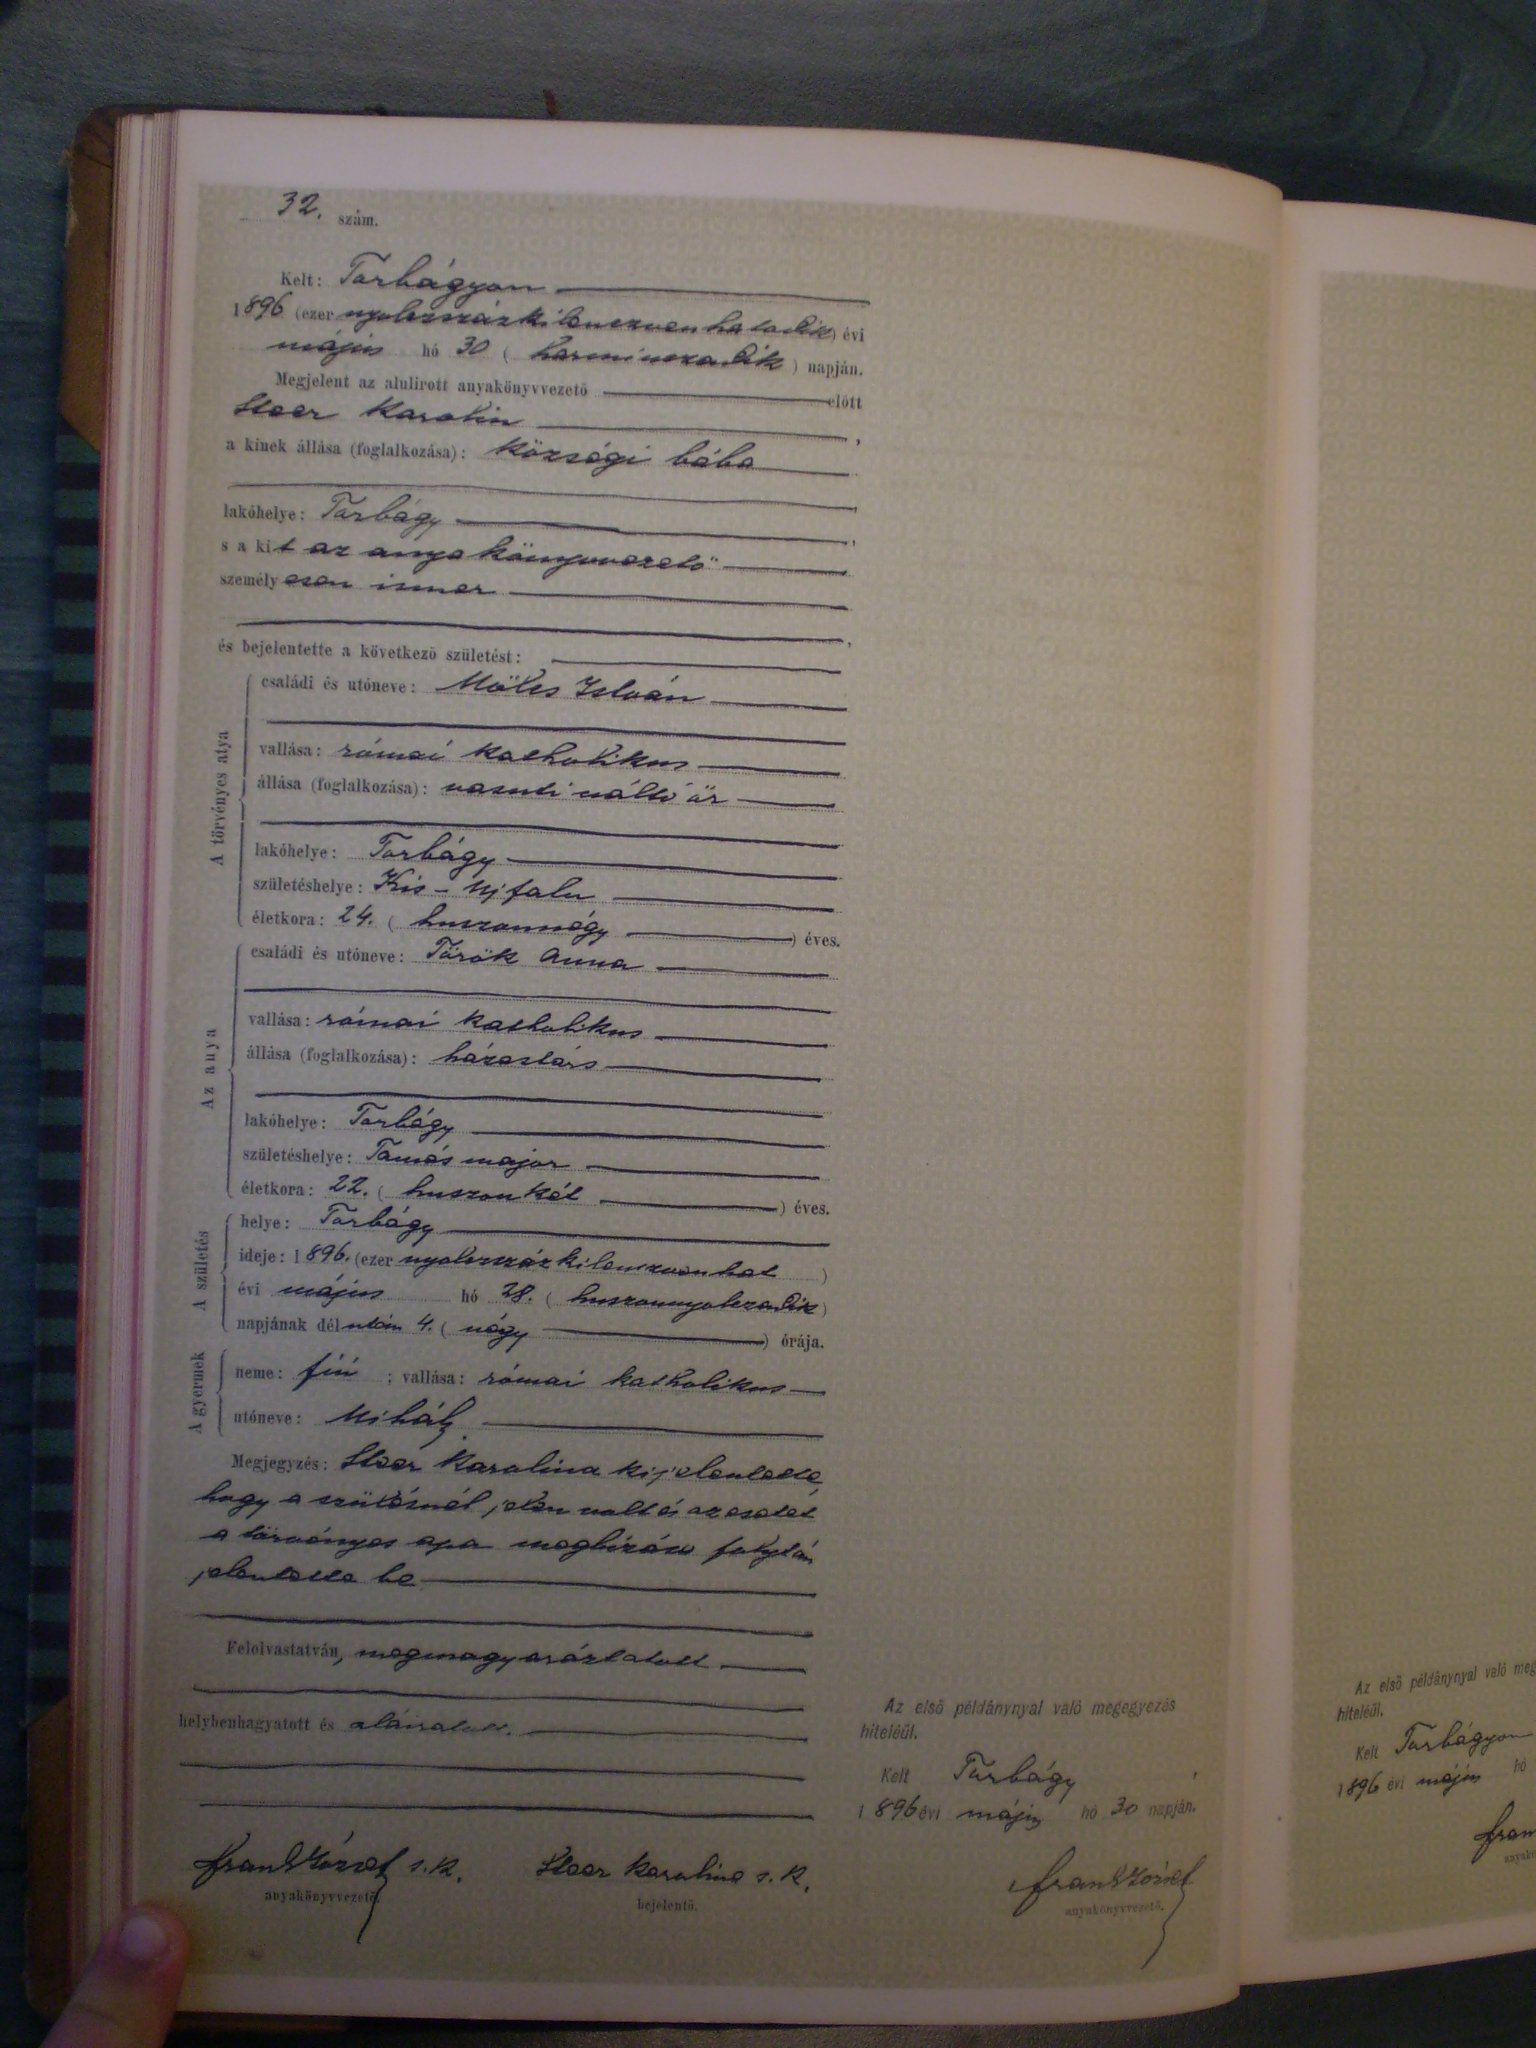 32. szám.
Kelt: Torbágyon
1896 (ezer nyolczszázkilenczvenhatodik) évi
május hó 30 (harminczadik) napján.
Megjelent az alulirott anyakönyvvezető előtt
Steer Karolin,
a kinek állása (foglalkozása): községi bába
lakóhelye: Torbágy,
s a kit az anyakönyvvezető
személyesen ismer
és bejelentette a következő születést:
A törvényes atya
családi és utóneve: István
vallása: római katholikus
állása (foglalkozása): vasuti váltó őr
lakóhelye: Torbágy
születéshelye: Kis-Ujfalu
életkora: 24. (huszonnégy) éves.
Az anya
családi és utóneve: Török Anna
vallása: római katholikus
állása (foglalkozása): házastárs
lakóhelye: Torbágy
születéshelye: Tamás major
életkora: 22. (huszonkét) éves.
A születés
helye: Torbágy
ideje: 1896. (ezer nyolczszázkilenczvenhat)
évi május hó 28. (huszonnyolczadik)
napjának délután 4. (négy) órája.
A gyermek
neme: fiú; vallása: római katholikus
utóneve: Mihály.
Megjegyzés: Steer Karolina kijelentette,
hogy a szülésnél jelen volt és az esetet
a törvényes apa megbizása folytán
jelentette be
Felolvastatván, megmagyaráztatott
helybenhagyatott és aláiratott.
Frank József s. k.
anyakönyvvezető
Steer Karolina s. k.
bejelentő.
Az első példánynyal való megegyezés
hiteléűl.
Kelt Torbágy,
1896 évi május hó 30 napján.
Frank József
anyakönyvvezető.
Az első példánynyal való meg
hiteléűl.
Kelt Torbágyon
1896 évi május hó
Fran
anyakö